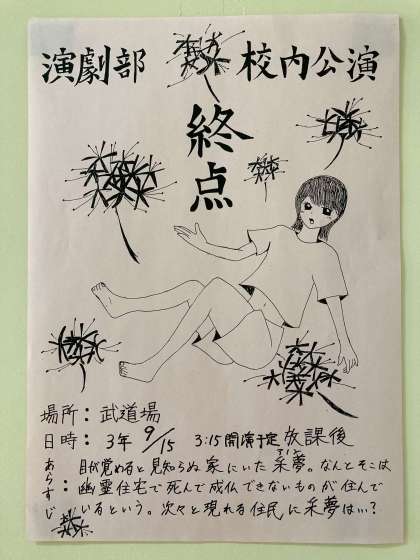 演劇部 校内公演
終点
場所: 武道場
日時: 3年 9/15 3:15開演予定 放課後
あらすじ: 目が覚めると見知らぬ家にいた采夢。なんとそこは
幽霊住宅で死んで成仏できないものが住んで
いるという。次々と現れる住民に采夢は…?